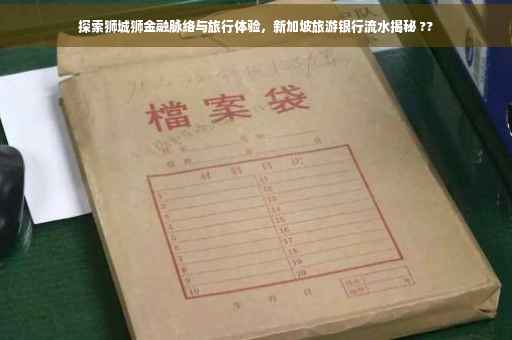 探索狮城狮金融脉络与旅行体验，新加坡旅游银行流水揭秘 ??
檔案袋
材料目次
1 11
2 12
3 13
4 14
5 15
6 16
7 17
8 18
9 19
10 20
年 月 日